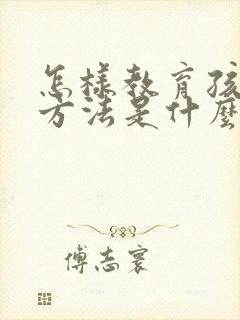 怎樣教育孩
方法是什麼
傅志寰